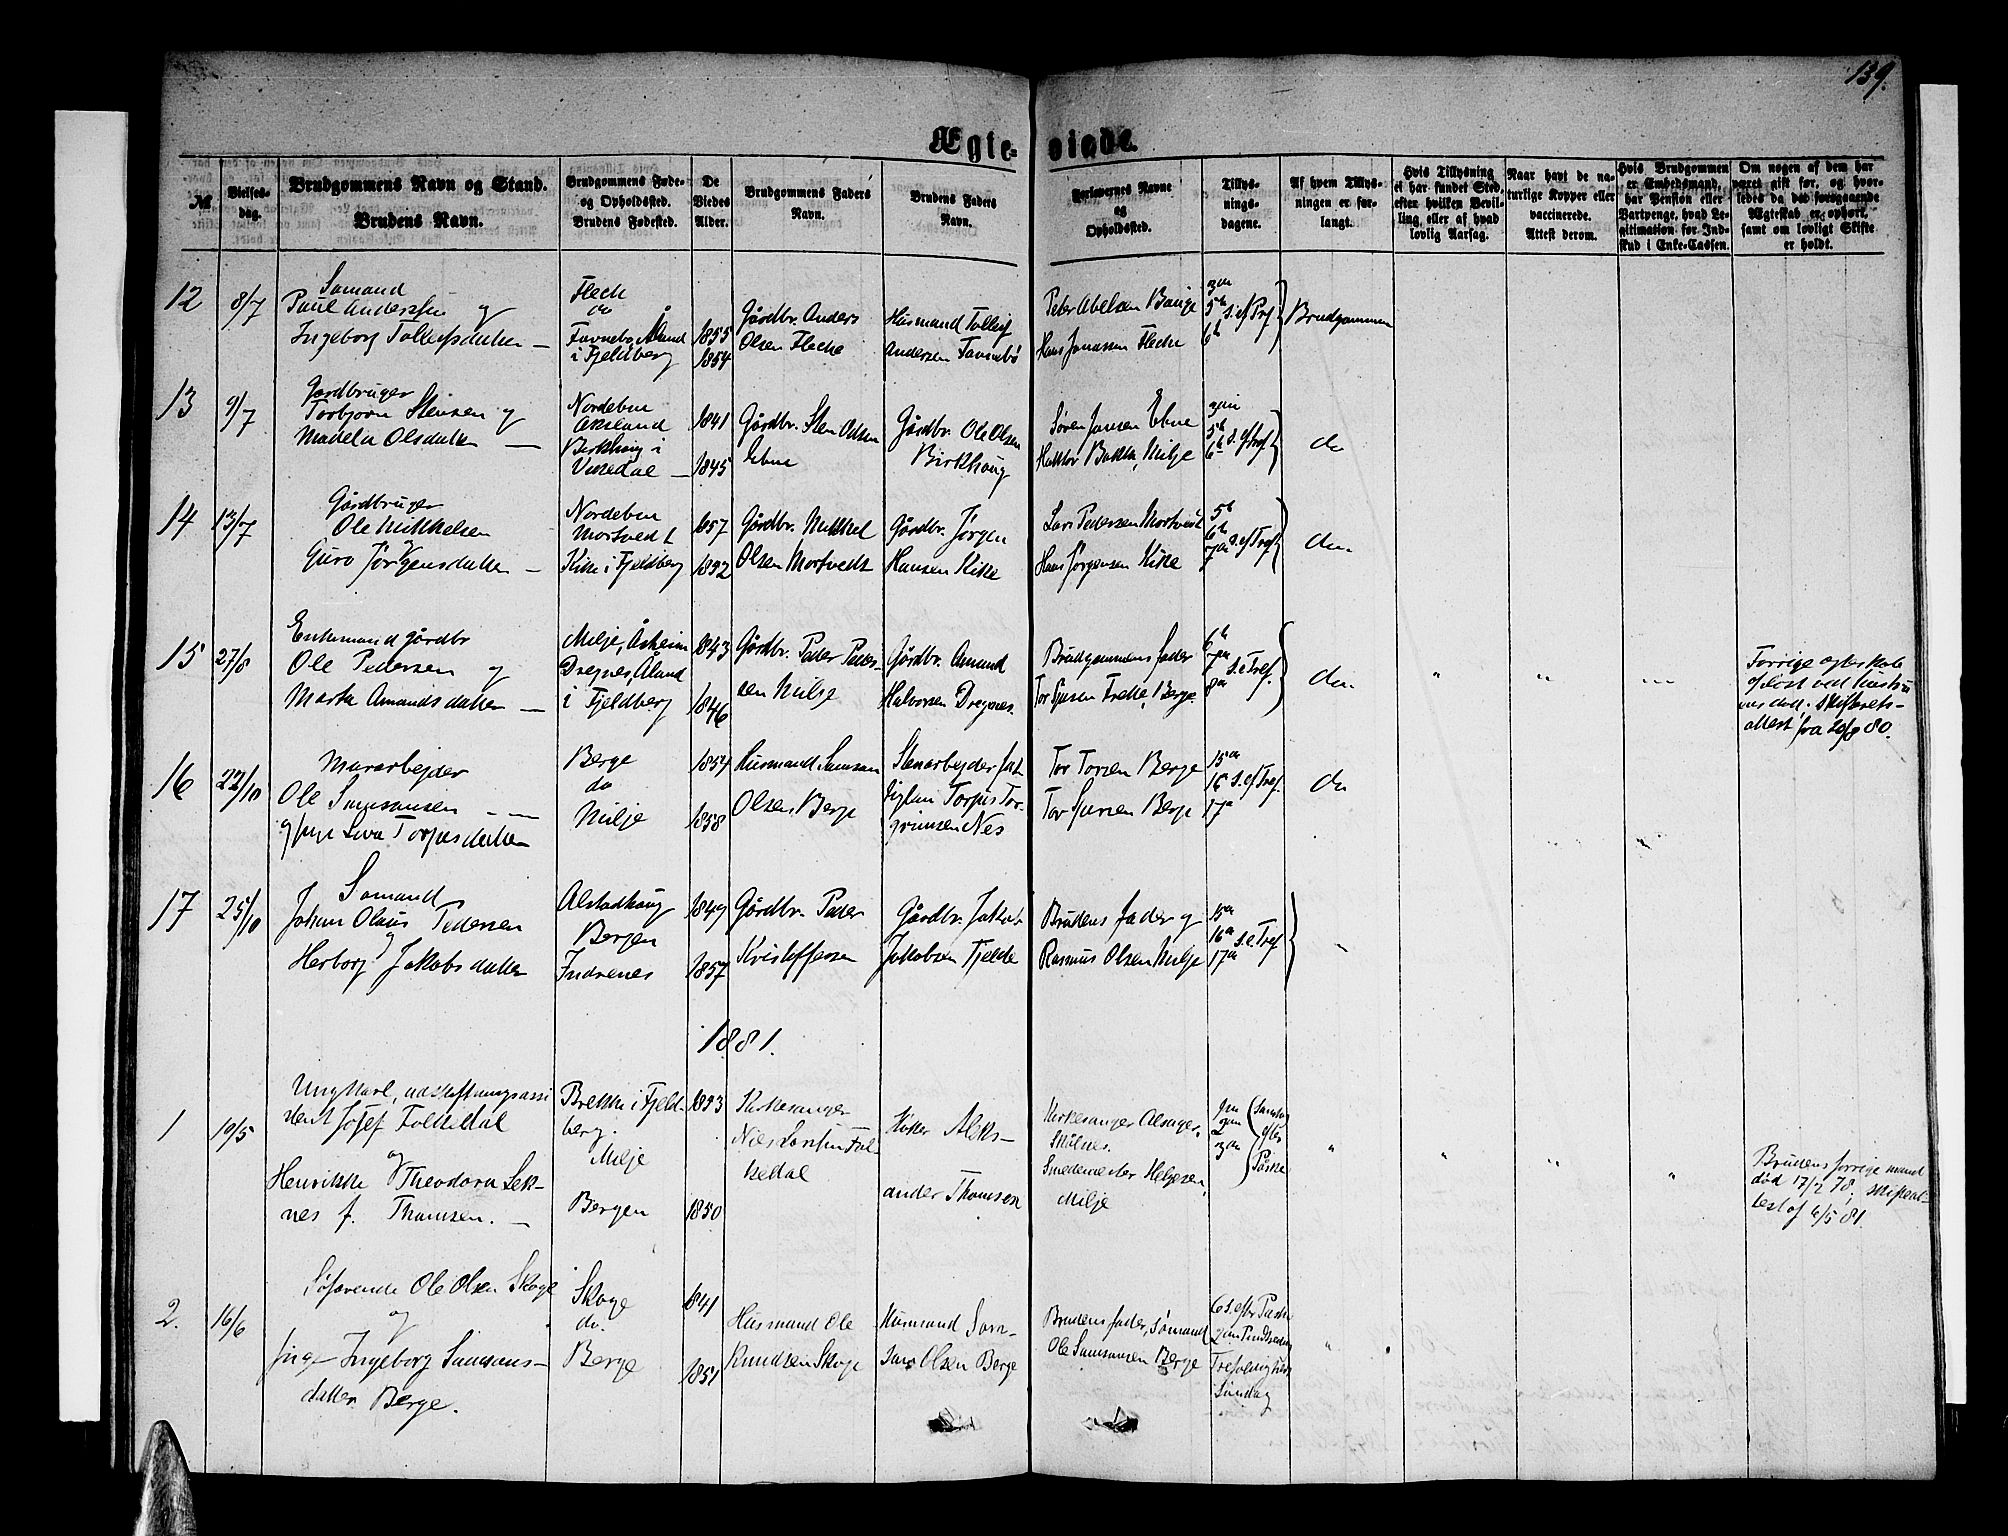 139.
Ægte-viede.
№
Vielses-dag.
Brudgommens Navn og Stand.
Brudens Navn.
Brudgommens Føde-
og Opholdssted.
Brudens Fødested.
De
Viedes
Alder.
Brudgommens Faders
Navn.
Brudens Faders
Navn.
Forlovernes Navne
og
Opholdssted.
Tillys-
nings-
dagene.
Af hvem Tillys-
ningen er for-
langt.
Hvis Tillysning
ei har fundet Sted,
efter hvilken Bevil-
ling, eller af hvad
lovlig Aarsag.
Naar havt de na-
turlige Kopper eller
vaccinerede.
Attest derom.
Hvis Brudgommen
er Embedsmand,
har Pension eller
Vartpenge, hvad Le-
gitimation for Ind-
skud i Enke-Cassen.
Om nogen af dem har
været gift før, og hvor-
ledes da det foregaaende
Ægteskab er ophørt,
samt om lovligt Skifte
er holdt.
12
8/7
Sømand
Paul Andersen og
Ingeborg Tollefsdatter
Fleche
do
i Fjeldberg
1855
1854
Gårdbr. Anders
Olsen Fleche
Husmand Tollef
Andersen
Peter Abelsen Bauge
Hans Jonassen Fleche
5te S. ef Tref
6te
Brudgommen
13
9/7
Gårdbruger
Torbjørn Stensen og
Madela Olsdatter
Nordebøe
Birkhaug i
1841
1845
Gårdbr. Sten
Ebne
Gårdbr. Ole Olsen
Birkhaug
Søren Jansen Ebne
5te
6te S. ef Tref
do
14
13/7
Gårdbruger
Ole Mikkelsen
og
Guro Jørgensdatter
Mortvedt
Kikke i Fjeldberg
1857
Gårdbr. Mikkel
Olsen Mortvedt
Gårdbr. Jørgen
Hansen Kikke
Lars Pedersen Mortvedt
Hans Jørgensen Kikke
5te
6te
7de S. ef Tref
do
15
27/8
Enkemand gårdbr
Ole Pedersen og
Marta Amundsdatter
Milje,
Dregnes, Åland
i Fjeldberg
1843
1846
Gårdbr. Peder Peder-
sen Milje
Gårdbr. Amund
Halvorsen Dregnes.
Brudgommens fader
Berge.
6te
7de
8de S. e Tref.
do
Forrige ægteskab
opløst ved hustru-
ens død. Skifterets-
attest fra 20/8 80.
16
22/10
Murarbejder
Ole Samsonsen
og pige Torgersdatter
Berge
do
Milje
1854
1858
Husmand Samson
Olsen, Berge
Stenarbejder
Nes
Tor Torsen Berge
Tor Berge
15de
16 S. ef Tref.
17de
do
17
25/10
Sømand
Johan Olaus Pedersen
og
Herborg Jakobsdatter
Alstadhaug
Bergen
Indrenes
1849
1857
Gårdbr. Peder
Kristoffersen
Gårdbr. Jakob
Jakobsen Fjelde
Brudens fader og
Rasmus Olsen Milje
15de
16de S. e Tref.
17de
1881.
1
19/5
Ungkarl, udskiftningsassi
stent Josef Folkedal
og
Henrikke Theodora Sek-
nes f. Thomsen.
Brekke i Fjeld-
berg.
Milje
Bergen
1853
1850
Kirkesanger
Nils Larsen Fol-
kedal
Aleks-
ander Thomsen
Kirkesanger Alsager,
Skålnes.
Smedemester Helgesen,
Milje
1ste
2den
3die
Søndag
efter
Påske
Brudens forrige mand
død 17/2 78, skifteat-
test af 6/5 81.
2.
16/6
Søfarende Ole Olsen Skoge
og
Pige Ingeborg Samsons-
datter Berge.
Skoge
do.
Berge
1841
1851
Husmand Ole
Knudsen Skoge
Husmand Sam-
son Olsen Berge
Brudens fader, sømand
Ole Samsonsen Berge
6 S. efter Påske
2den Pindsedag
Trefoldigheds
Søndag